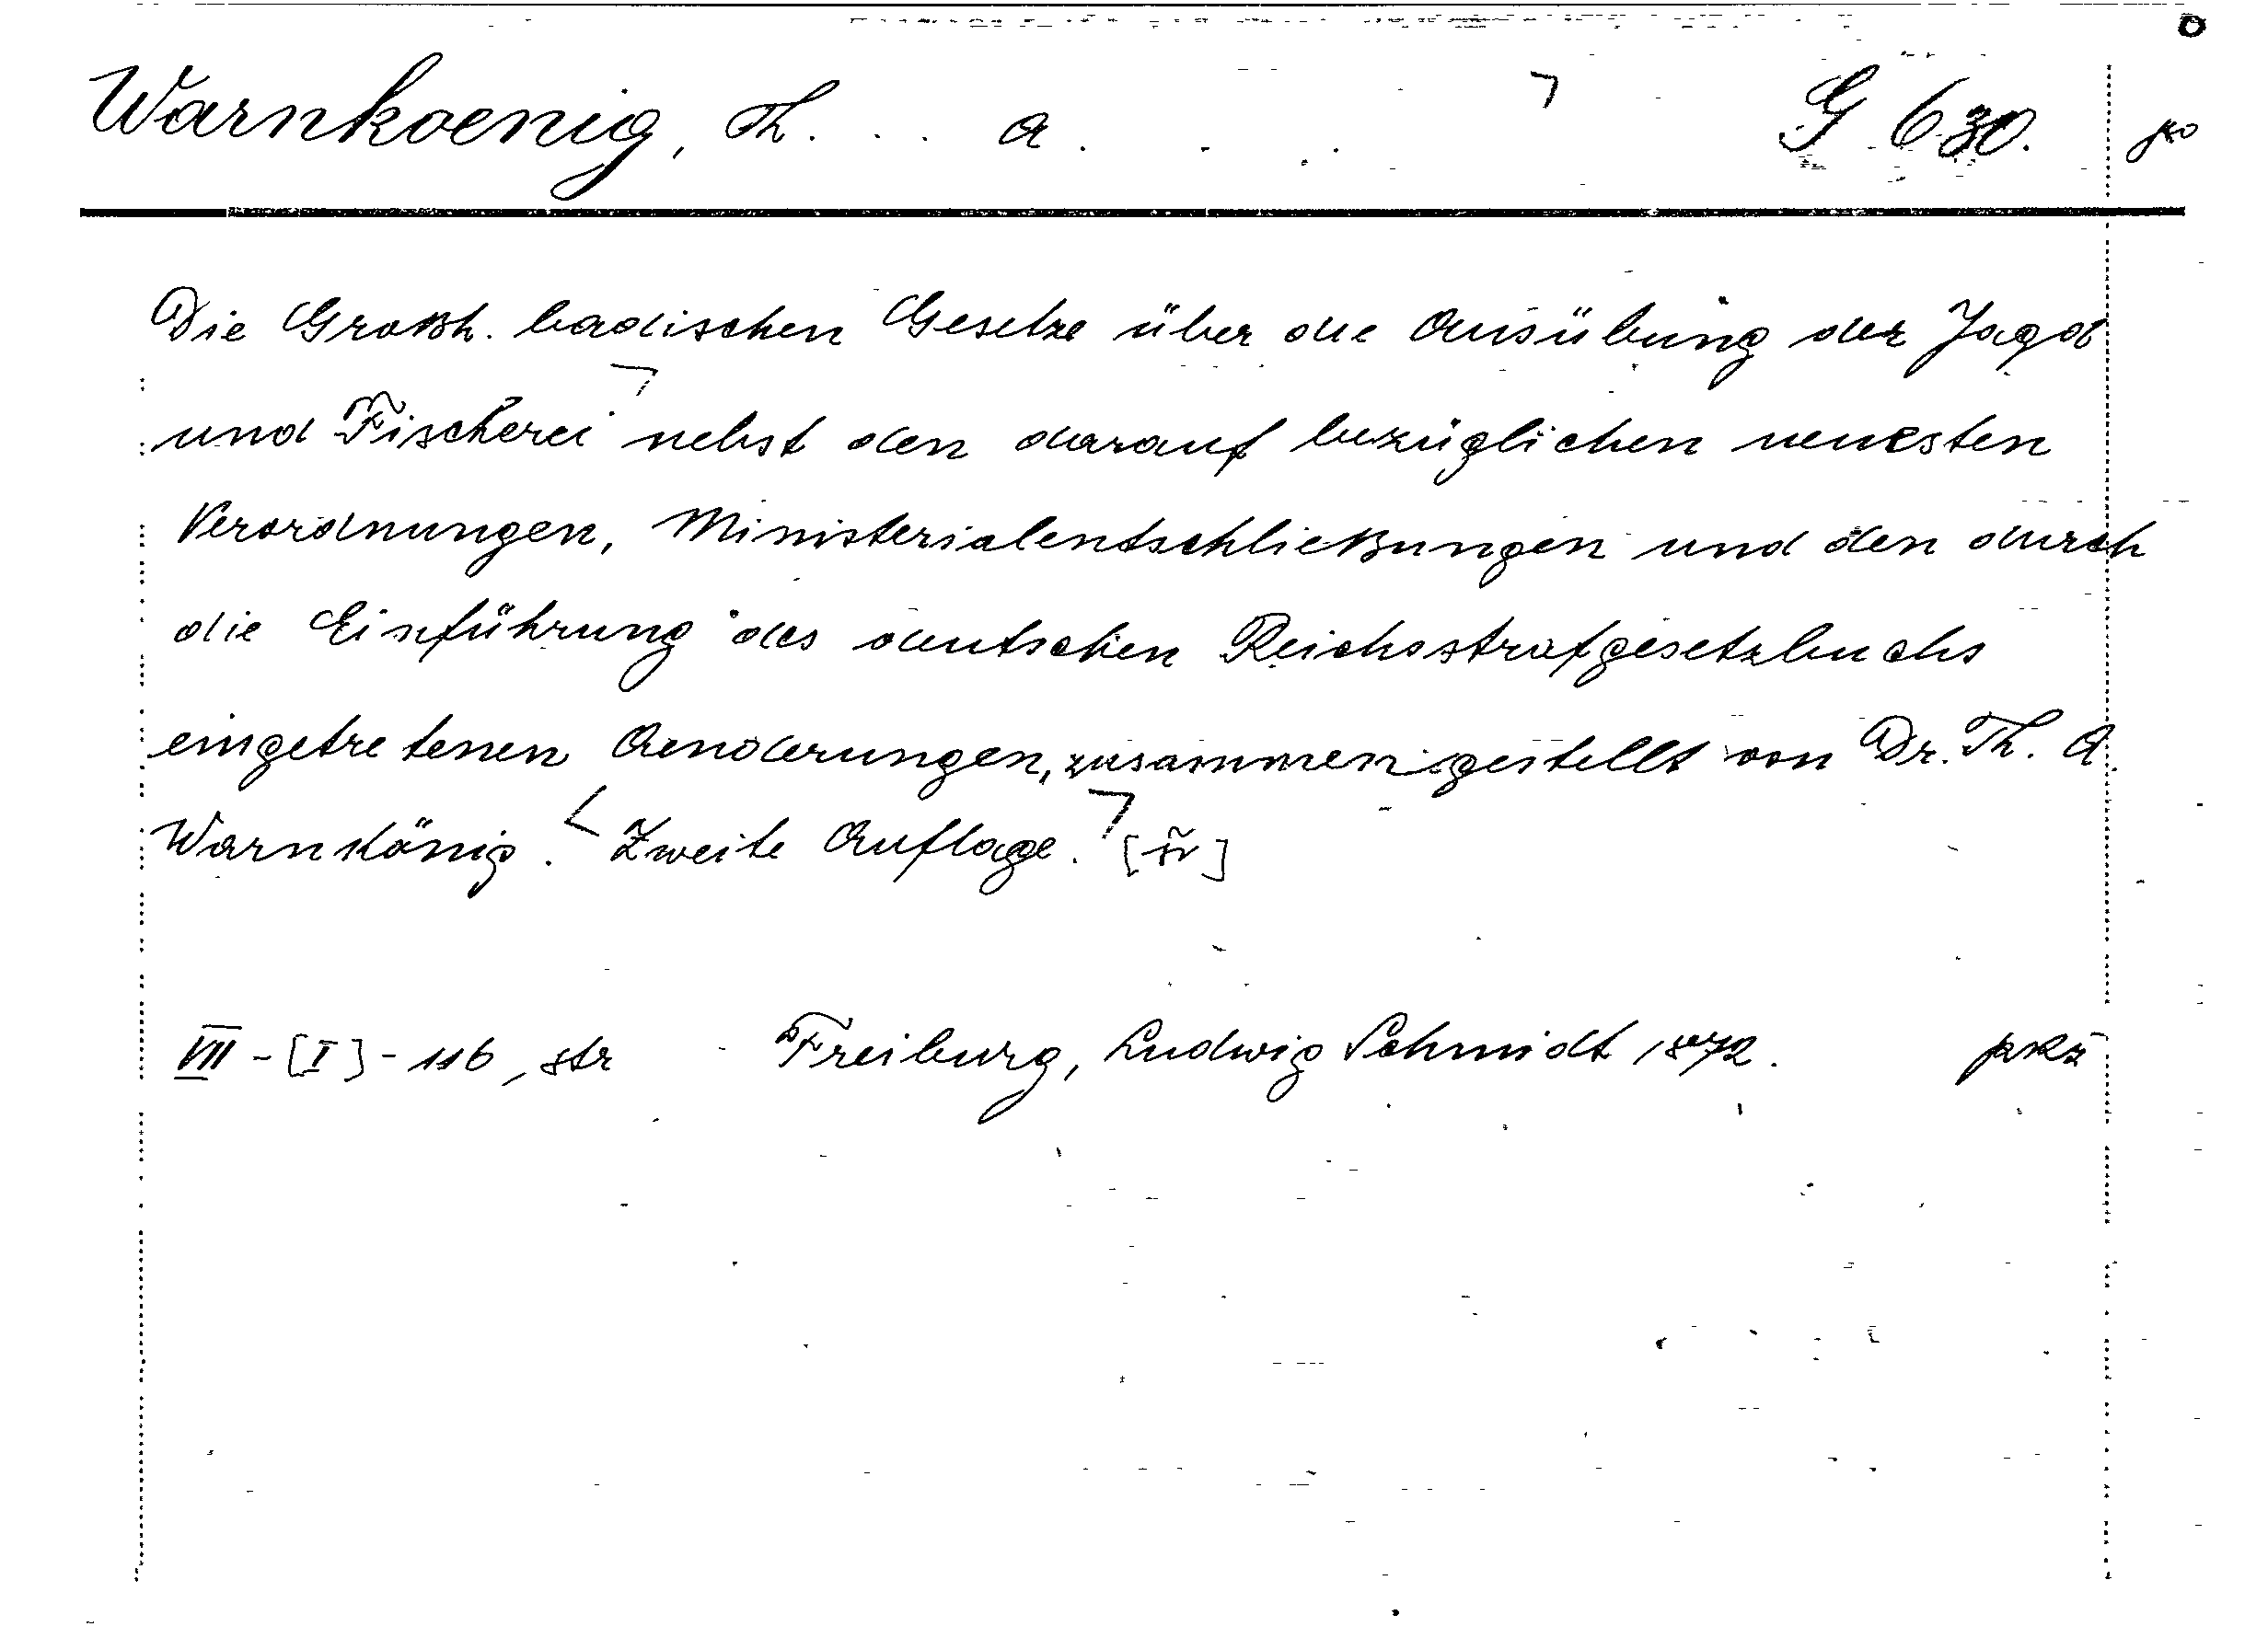 Warnkoenig, Th. . . A . . . . G 630.
Die Großh. badischen Gesetze über die Ausübung der Jagd
und Fischerei nebst den darauf bezüglichen neuesten
Verordnungen, Ministerialentschließungen und den durch
die Einführung des deutschen Reichsstrafgesetzbuchs
eingetretenen Aenderungen, zusammengestellt von Dr. Th. A.
Warnkönig. Zweite Auflage.
VII - [I] - 116, str Freiburg, Ludwig Schmidt 1872.